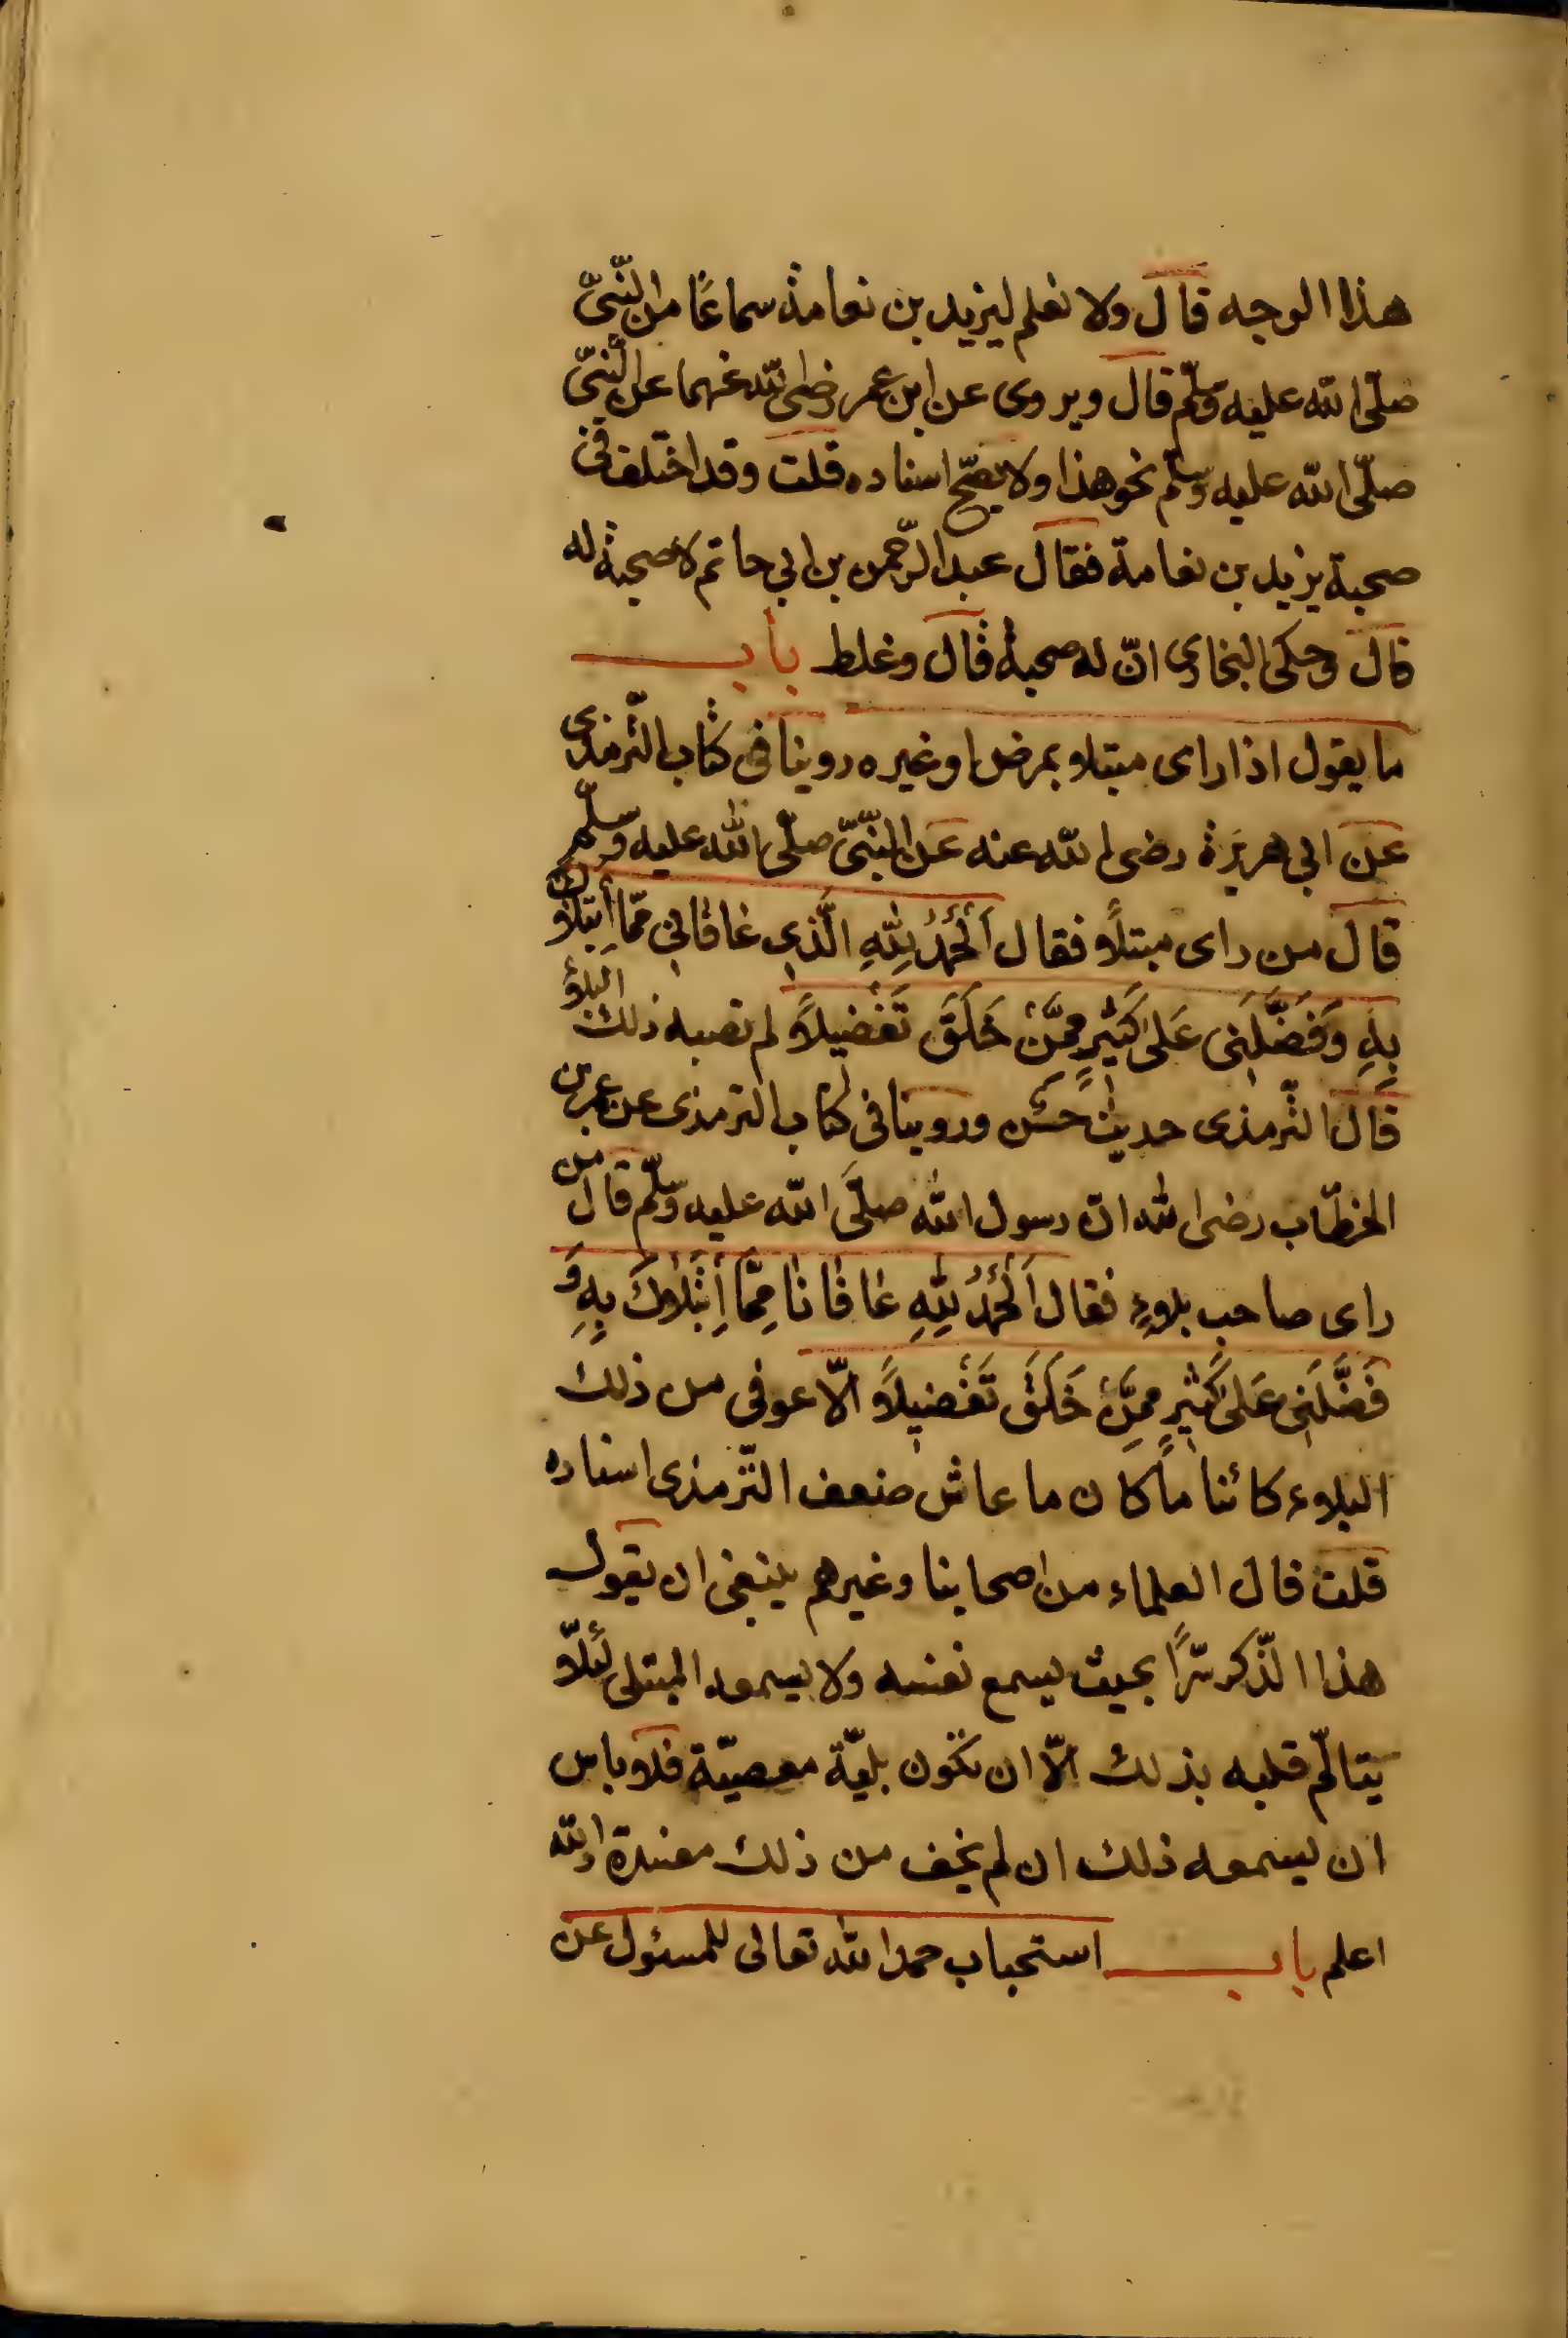 هذا الوجه قال ولا نعلم ليزيد بن نعامة سماعًا من النّبيّ
صلّى الله عليه وسلّم قال ويروى عن ابن عمر رضى الله عنهما عن النّبيّ
صلّى الله عليه وسلّم نحو هذا ولا يصحّ اسناده قلت وقد اختلف فى
صحبة يزيد بن نعامة فقال عبد الرّحمن بن ابي حاتم لا صحبة له
قال وحكى البخارى انّ له صحبة قال وغلط باب
ما يقول اذا راى مبتلا بمرض او غيره روينا فى كتاب التّرمذى
عن ابي هريرة رضى الله عنه عن النّبيّ صلّى الله عليه وسلّم
قال من راى مبتلًا فقال اَلْحَمْدُ لِلّٰهِ الَّذِى عَافَانِى مِمَّا اِبْتَلَاكَ
بِهِ وَفَضَّلَنِى عَلٰى كَثِيْرٍ مِمَّنْ خَلَقَ تَفْضِيلًا لم تصبه ذلك البلاؤ
قال التّرمذى حديث حسن وروينا فى كتاب الترمذى عن عمر بن
الخطّاب رضى الله ان رسول الله صلَّى الله عليه وسلّم قال من
راى صاحب بلاءٍ فقال اَلْحَمْدُ لِلّٰهِ عَافَانَا مِمَّا اِبْتَلَاكَ بِهِ وَ
فَضَّلَنِى عَلٰى كَثِيْرٍ مِمَّنْ خَلَقَ تَفْضِيلًا الّا عوفى من ذلك
البلاء كائنا ماً كان ما عاش ضعف التّرمذى اسناده
قلت قال العلماء من اصحابنا وغيرهم ينبغى ان يقول
هذا الذّكر سرًّا بحيث يسمع نفسه ولا يسمعه المبتلى لئلّا
يتالّم قلبه بذلك الّا ان تكون بليّة معصيّة فلا باس
ان يسمعه ذلك ان لم يخف من ذلك مفسدة والله
اعلم باب استحباب حمد الله تعالى للمسئول عن